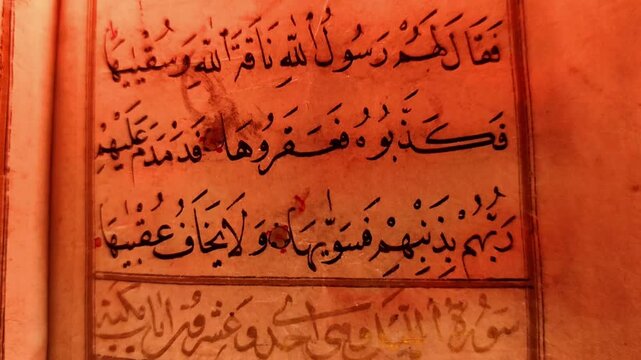 فَقَالَ لَهُمْ رَسُولُ ٱللّٰهِ نَاقَةَ ٱللّٰهِ وَسُقْيٰيهَا
فَكَذَّبُوهُ فَعَقَرُوهَا فَدَمْدَمَ عَلَيْهِمْ
رَبُّهُمْ بِذَنْبِهِمْ فَسَوّٰيهَا وَلَا يَخَافُ عُقْبٰيهَا
سورة الليل وهي احدى وعشرون ايات مكية